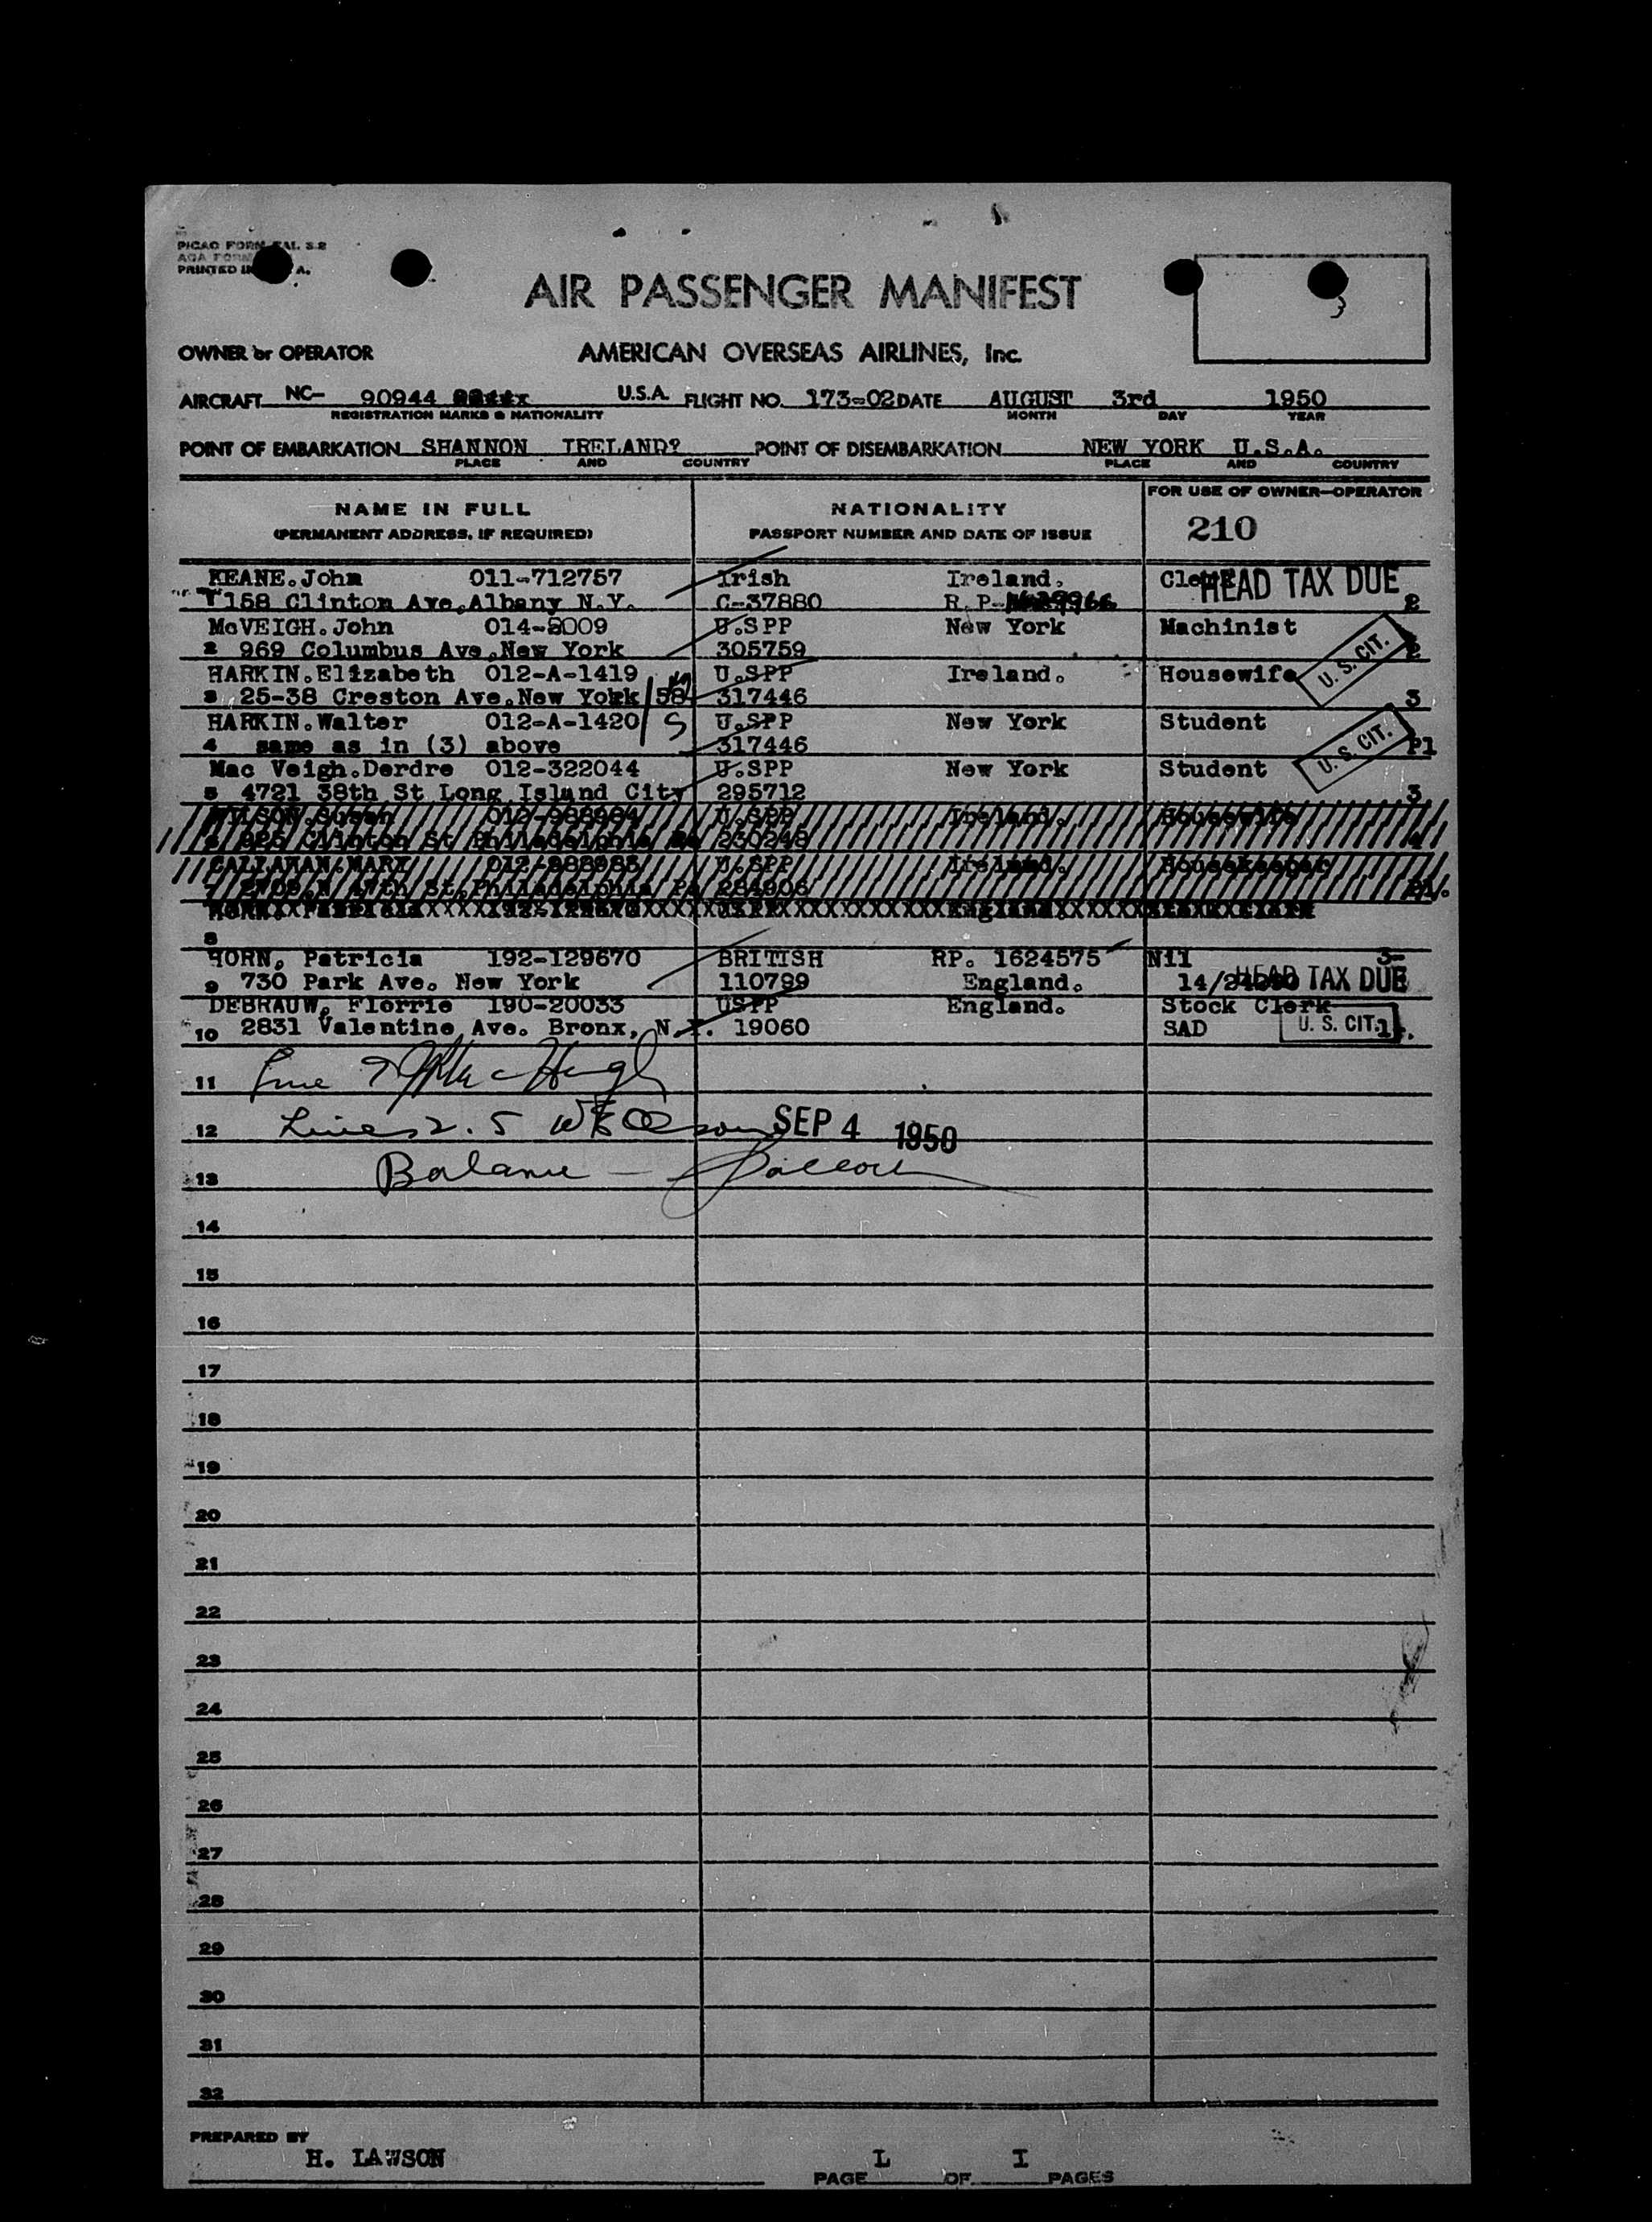 PICAO FORM FAL S-2
AOA FORM
PRINTED IN A.
AIR PASSENGER MANIFEST
OWNER or OPERATOR AMERICAN OVERSEAS AIRLINES, Inc.
AIRCRAFT NC- 90944 U.S.A. FLIGHT NO. 173-02 DATE AUGUST 3rd 1950
REGISTRATION MARKS & NATIONALITY MONTH DAY YEAR
POINT OF EMBARKATION SHANNON IRELAND? POINT OF DISEMBARKATION NEW YORK U.S.A.
PLACE AND COUNTRY PLACE AND COUNTRY
FOR USE OF OWNER-OPERATOR
NAME IN FULL NATIONALITY 210
(PERMANENT ADDRESS, IF REQUIRED) PASSPORT NUMBER AND DATE OF ISSUE
KEANE.John 011-712757 Irish Ireland. Clerk HEAD TAX DUE
158 Clinton Ave,Albany N.Y. C-37880 R.P- 2
McVEIGH.John 014-2009 U.SPP New York Machinist
2 969 Columbus Ave,New York 305759 2 U.S. CIT.
HARKIN.Elizabeth 012-A-1419 U.SPP Ireland. Housewife
3 25-38 Creston Ave.New York 58 317446 3
HARKIN.Walter 012-A-1420 S U.SPP New York Student
4 same as in (3) above 317446 P1 U.S. CIT.
Mac Veigh.Derdre 012-322044 U.SPP New York Student
5 4721 38th St Long Island City 295712 3
WILSON.Susan 012-988984 U.SPP Ireland. Housewife
925 Clinton St Philadelphia Pa 230248 4
CALLAHAN.MARY 012-988985 U.SPP Ireland. Housekeeper
7 2709.N 47th St.Philadelphia Pa 284906 P1.
8
HORN, Patricia 192-129670 BRITISH RP. 1624575 Nil 3-
9 730 Park Ave. New York 110789 England. HEAD TAX DUE
DEBRAUW, Florrie 190-20033 USPP England. Stock Clerk
10 2831 Valentine Ave. Bronx, N.Y. 19060 SAD U. S. CIT. 1.
11
12 Lines 2. 5 SEP 4 1950
13 Balance -
14
15
16
17
18
19
20
21
22
23
24
25
26
27
28
29
30
31
32
PREPARED BY
H. LAWSON L I
PAGE OF PAGES